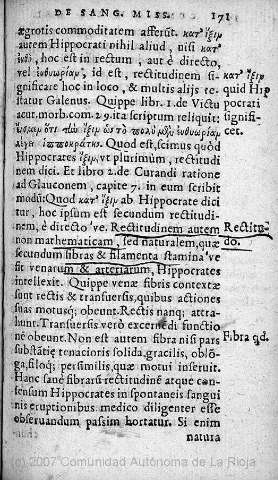 DE SANG. MISS. 171
ægrotis commoditatem afferūt. κατ' ἴξιν
autem Hippocrati nihil aliud, nisi κατ'
hoc est in rectum, aut è directo,
vel id est, rectitudinem si-
gnificare hoc in loco, & multis alijs te-
statur Galenus. Quippe libr. 1. de Victu
acut. morb. com 29. ita scriptum reliquit:
ὅτι τῶν ἴξιν
Quod est, scimus quòd
Hippocrates ἴξιν, vt plurimùm, rectitudi
nem dici. Et libro 2. de Curandi ratione
ad Glauconem, capite 7. in eum scribit
modū: Quod κατ' ἴξιν ab Hippocrate dici
tur, hoc ipsum est secundum rectitudi-
nem, è directo've. Rectitudinem autem
non mathematicam, sed naturalem, quæ
secundum fibras & filamenta stamina've
sit venarum & arteriarum, Hippocrates
intellexit. Quippe venæ fibris contextæ
sunt rectis & transuersis, quibus actiones
suas motusq; obeunt. Rectis nanq; attra-
hunt. Transuersis verò excernēdi functio
nē obeunt. Non est autem fibra nisi pars
substātię tenacioris solida, gracilis, oblō-
ga, filoq; persimilis, quæ motui inseruit.
Hanc sanè fibrarū rectitudinē atque con-
sensum Hippocrates in spontaneis sangui
nis eruptionibus medico diligenter esse
obseruandum passim hortatur. Si enim
natura
κατ' ἴξιν
quid Hip
pocrati
signifi-
cet.
Rectitu-
do.
Fibra qd.
© 2007 Comunidad Autónoma de La Rioja